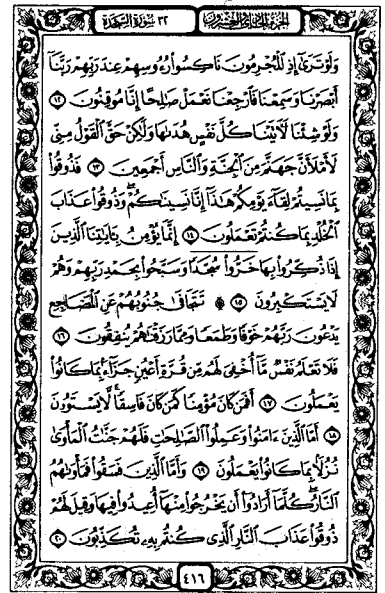 الجزء الحادي والعشرون
٣٢ سورة السجدة
وَلَوْ تَرَىٰٓ إِذِ ٱلْمُجْرِمُونَ نَاكِسُوا۟ رُءُوسِهِمْ عِندَ رَبِّهِمْ رَبَّنَآ
أَبْصَرْنَا وَسَمِعْنَا فَٱرْجِعْنَا نَعْمَلْ صَٰلِحًا إِنَّا مُوقِنُونَ ١٢
وَلَوْ شِئْنَا لَءَاتَيْنَا كُلَّ نَفْسٍ هُدَىٰهَا وَلَٰكِنْ حَقَّ ٱلْقَوْلُ مِنِّى
لَأَمْلَأَنَّ جَهَنَّمَ مِنَ ٱلْجِنَّةِ وَٱلنَّاسِ أَجْمَعِينَ ١٣ فَذُوقُوا۟
بِمَا نَسِيتُمْ لِقَآءَ يَوْمِكُمْ هَٰذَآ إِنَّا نَسِينَٰكُمْ ۖ وَذُوقُوا۟ عَذَابَ
ٱلْخُلْدِ بِمَا كُنتُمْ تَعْمَلُونَ ١٤ إِنَّمَا يُؤْمِنُ بِـَٔايَٰتِنَا ٱلَّذِينَ
إِذَا ذُكِّرُوا۟ بِهَا خَرُّوا۟ سُجَّدًا وَسَبَّحُوا۟ بِحَمْدِ رَبِّهِمْ وَهُمْ
لَا يَسْتَكْبِرُونَ ۩ ١٥ تَتَجَافَىٰ جُنُوبُهُمْ عَنِ ٱلْمَضَاجِعِ
يَدْعُونَ رَبَّهُمْ خَوْفًا وَطَمَعًا وَمِمَّا رَزَقْنَٰهُمْ يُنفِقُونَ ١٦
فَلَا تَعْلَمُ نَفْسٌ مَّآ أُخْفِىَ لَهُم مِّن قُرَّةِ أَعْيُنٍ جَزَآءًۢ بِمَا كَانُوا۟
يَعْمَلُونَ ١٧ أَفَمَن كَانَ مُؤْمِنًا كَمَن كَانَ فَاسِقًا ۚ لَّا يَسْتَوُۥنَ
١٨ أَمَّا ٱلَّذِينَ ءَامَنُوا۟ وَعَمِلُوا۟ ٱلصَّٰلِحَٰتِ فَلَهُمْ جَنَّٰتُ ٱلْمَأْوَىٰ
نُزُلًۢا بِمَا كَانُوا۟ يَعْمَلُونَ ١٩ وَأَمَّا ٱلَّذِينَ فَسَقُوا۟ فَمَأْوَىٰهُمُ
ٱلنَّارُ ۖ كُلَّمَآ أَرَادُوٓا۟ أَن يَخْرُجُوا۟ مِنْهَآ أُعِيدُوا۟ فِيهَا وَقِيلَ لَهُمْ
ذُوقُوا۟ عَذَابَ ٱلنَّارِ ٱلَّذِى كُنتُم بِهِۦ تُكَذِّبُونَ ٢٠
٤١٦